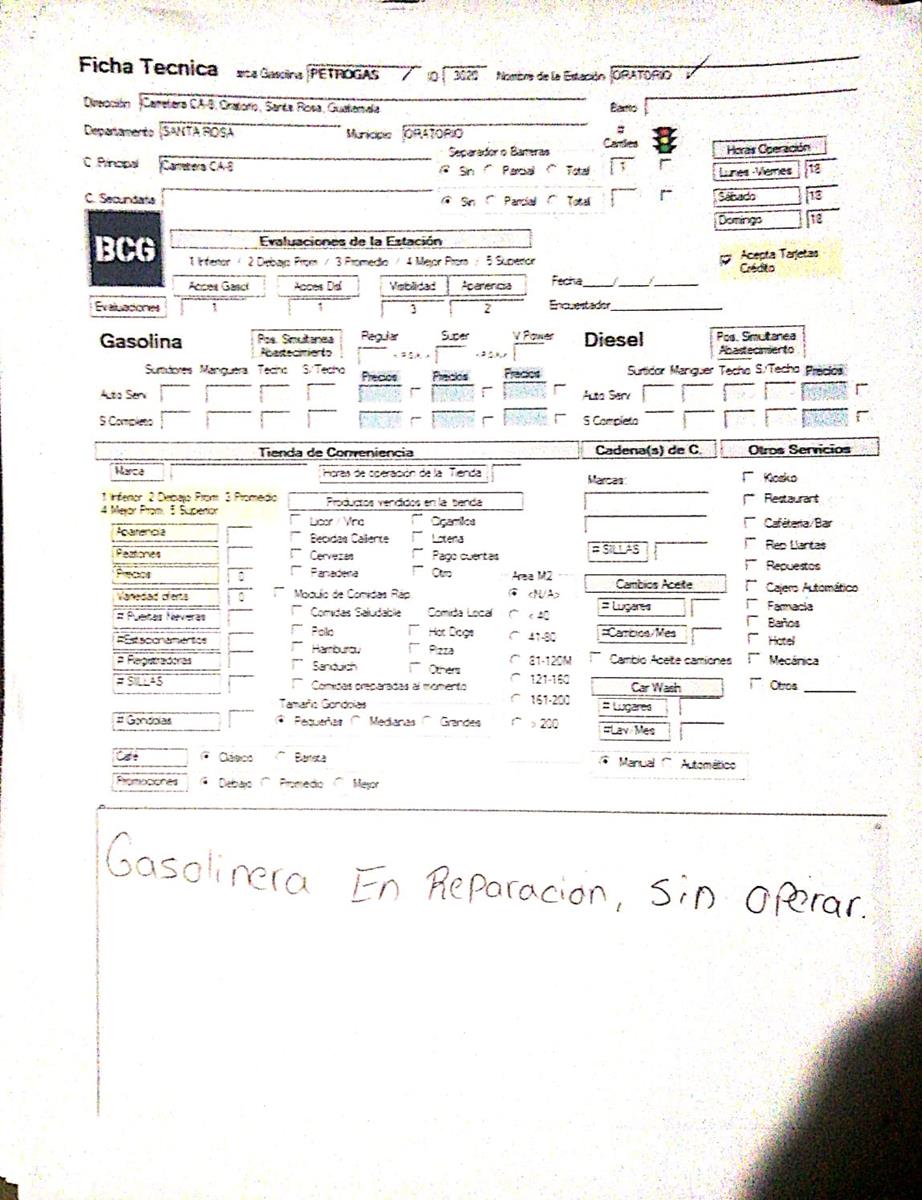 Ficha Tecnica arca Gasolina PETROGAS ID 3020 Nombre de la Estación ORATORIO
Dirección Carretera CA-8, Oratorio, Santa Rosa, Guatemala Barrio
Departamento SANTA ROSA Municipio ORATORIO # Carriles
C. Principal Carretera CA-8 Separador o Barreras Sin Parcial Total 1
C. Secundaria Sin Parcial Total
Horas Operación
Lunes -Viernes 18
Sábado 18
Domingo 18
BCG
Evaluaciones de la Estación
1 Inferior / 2 Debajo Prom / 3 Promedio / 4 Mejor Prom / 5 Superior
Acces Gasol Acces Dsl Visibilidad Apariencia
Evaluaciones 1 1 3 2
Fecha___/___/___
Encuestador
Acepta Tarjetas
Crédito
Gasolina Pos. Simultanea Abastecimiento Regular Super V Power
Surtidores Manguera Techo S/Techo Precios Precios Precios
Auto Serv
S Completo
Diesel Pos. Simultanea Abastecimiento
Surtidor Manguer Techo S/Techo Precios
Auto Serv
S Completo
Tienda de Conveniencia
Marca Horas de operación de la Tienda
1 Inferior 2 Debajo Prom 3 Promedio
4 Mejor Prom 5 Superior
Apariencia
Peatones
Precios 0
Variedad oferta 0
# Puertas Neveras
#Estacionamientos
# Registradoras
# SILLAS
# Gondolas
Productos vendidos en la tienda
Licor / Vino Cigarrillos
Bebidas Caliente Loteria
Cervezas Pago cuentas
Panaderia Otro
Modulo de Comidas Rap.
Comidas Saludable Comida Local
Pollo Hot Dogs
Hamburgu Pizza
Sandwich Others
Comidas preparadas al momento
Tamaño Gondolas
Pequeñas Medianas Grandes
Area M2
<N/A>
< 40
41-80
81-120M
121-160
161-200
> 200
Café Clásico Barista
Promociones Debajo Promedio Mejor
Cadena(s) de C.
Marcas:
# SILLAS
Cambios Aceite
# Lugares
#Cambios/Mes
Cambio Aceite camiones
Car Wash
# Lugares
#Lav/Mes
Manual Automático
Otros Servicios
Kiosko
Restaurant
Caféteria/Bar
Rep Llantas
Repuestos
Cajero Automático
Farmacia
Baños
Hotel
Mecánica
Otros
Gasolinera En Reparacion, Sin operar.